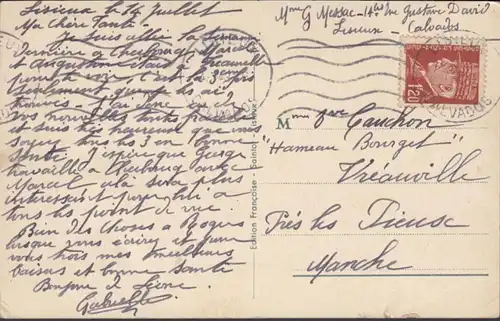 Lisieux le 14 Juillet
Ma Chère Tante
Je suis allé la semaine
dernière à Cherbourg, Marcel
et Augustine étais à Gréauville
pour le voir, c'est la 3ème
seulement, que je les ai
trouvés — J'ai donc eu
vos nouvelles toutes fraîches
et suis très heureuse que vous
soyez tous les 3 en bonne
Santé. J'espère que George
travaille à Cherbourg avec
Marcel cela sera plus
interessant pour lui à
tous les point de vue.
Bien des choses à Roger
lorsque vous écrirez et pour
vous trois mes meilleurs
baisers et bonne Santé
Bonjour à Léone
Gabrielle
Edition Française
Mme G Messac — 14bis rue Gustave David
Lisieux — Calvados
1f20
CALVADOS
Mme Vve Cauchon
"Hameau Bourget"
Vréauville
Près les Pieuse
Manche